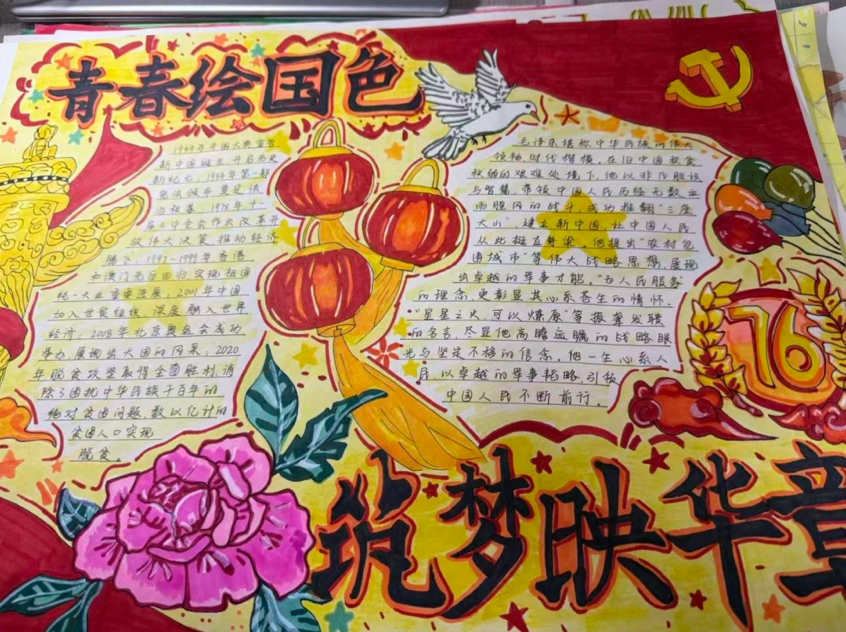 青春绘国色
1949年开国大典宣告
新中国诞生,开启历史
新纪元,1954年第一部
宪法颁布奠定法
治根基,1978年十一
届三中全会作出改革开
放伟大决策,推动经济
腾飞,1997-1999年香港
和澳门先后回归,实现祖国
统一大业重要进展,2001年中国
加入世贸组织,深度融入世界
经济,2008年北京奥运会成功
举办,展现出大国的风采,2020
年脱贫攻坚取得全面胜利,消
除了困扰中华民族千百年的
绝对贫困问题,数以亿计的
贫困人口实现
脱贫。
毛泽东堪称中华民族的伟大
领袖,时代楷模。在旧中国
的艰难处境下,他以非凡胆识
与智慧,带领中国人民历经无数血
雨腥风的战斗,成功推翻“三座
大山”建立新中国,让中国人民
从此挺直脊梁。他提出“农村包
围城市”等伟大战略思想,展现
出卓越的军事才能。“为人民服务”
的理念,更彰显其心系苍生的情怀。
“星星之火,可以燎原”等振聋发聩
的名言,尽显他高瞻远瞩的战略眼
光与坚定不移的信念。他一生心系人
民,以卓越的军事韬略,引领
中国人民不断前行。
76
筑梦映华章